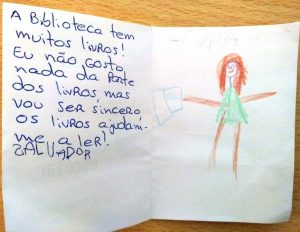 A BIBLIOTECA TEM
MUITOS LIVROS!
EU NÃO GOSTO
NADA DA PARTE
DOS LIVROS MAS
VOU SER SINCERO
OS LIVROS AJUDAM-
ME A LER!
SALVADOR